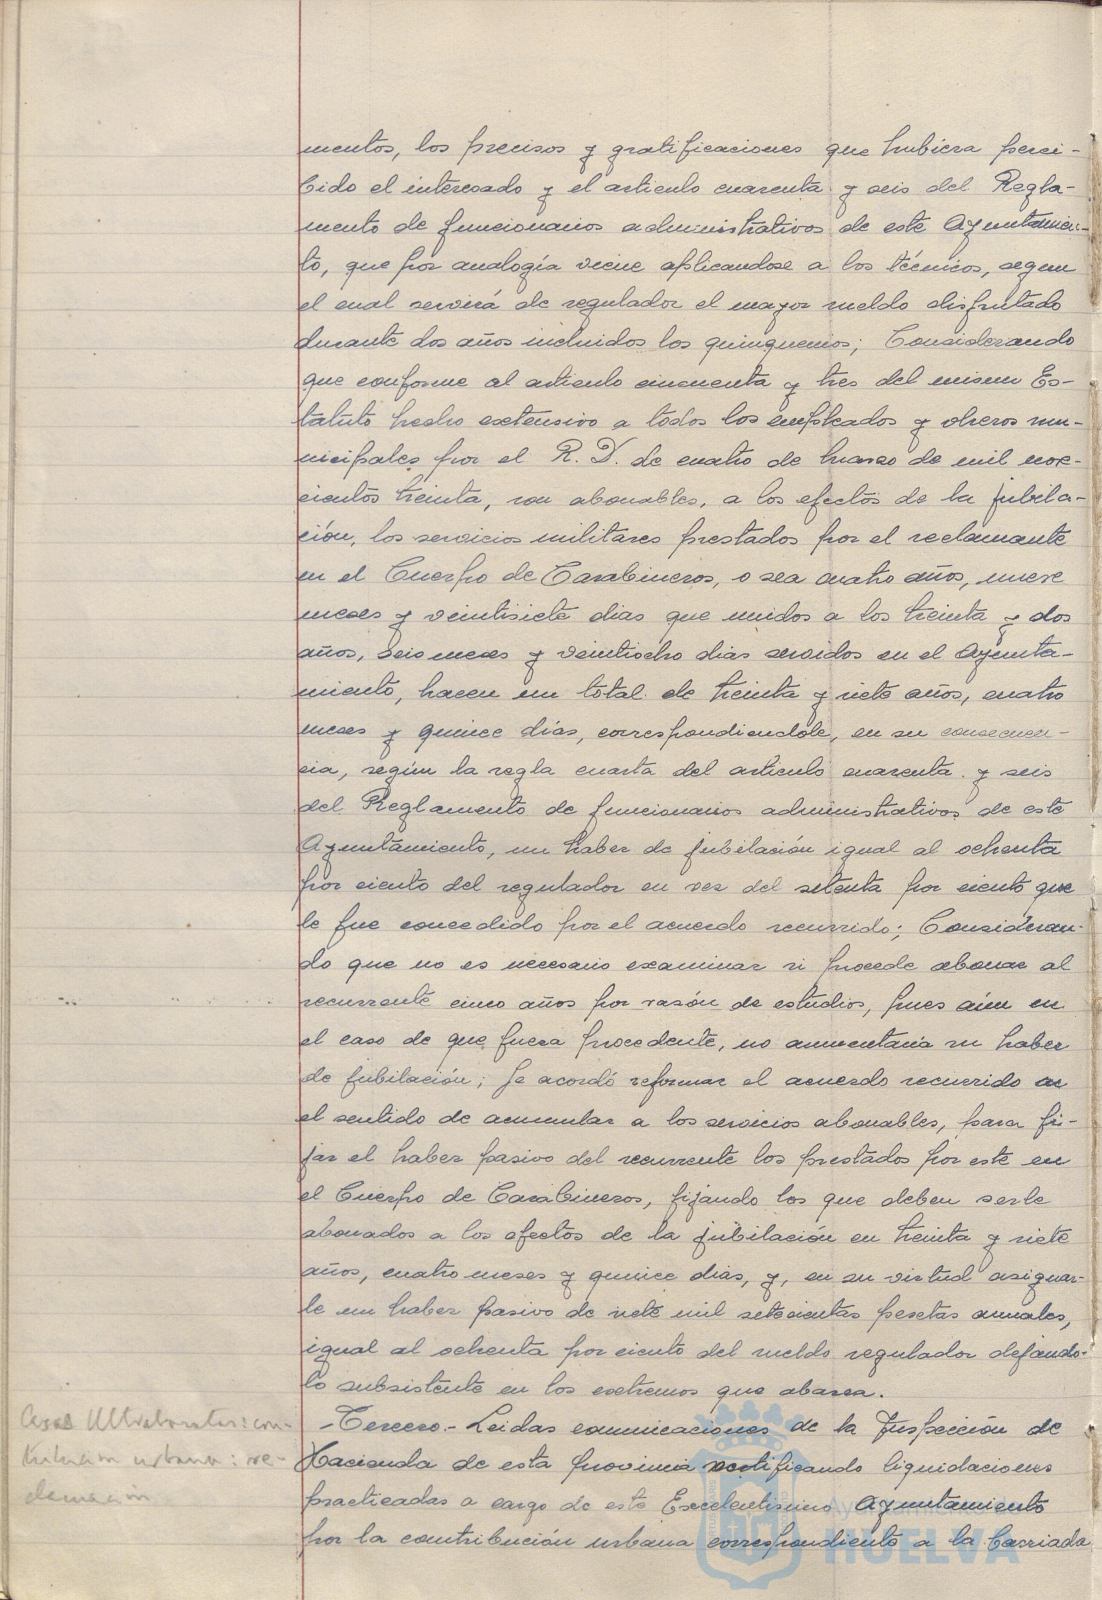 mentos, los precisos y gratificaciones que hubiera perci-
bido el interesado y el articulo cuarenta y seis del Regla-
mento de funcionarios administrativos de este Ayuntamien-
to, que por analogía viene aplicandose a los técnicos, segun
el cual servirá de regulador el mayor sueldo disfrutado
durante dos años incluidos los quinquenios; Considerando
que conforme al articulo cincuenta y tres del mismo Es-
tatuto hecho extensivo a todos los empleados y obreros mu-
nicipales por el R. D. de cuatro de marzo de mil nove-
cientos treinta, son abonables, a los efectos de la jubila-
ción, los servicios militares prestados por el reclamante
en el Cuerpo de Carabineros, o sea cuatro años, nueve
meses y veintisiete dias que unidos a los treinta y dos
años, seis meses y veintiocho dias servidos en el Ayunta-
miento, hacen un total de treinta y siete años, cuatro
meses y quince días, correspondiendole, en su consecuen-
cia, según la regla cuarta del articulo cuarenta y seis
del Reglamento de funcionarios administrativos de este
Ayuntamiento, un haber de jubilación igual al ochenta
por ciento del regulador en vez del setenta por ciento que
le fue concedido por el acuerdo recurrido; Consideran-
do que no es necesario examinar si procede abonar al
recurrente cinco años por razón de estudios, pues aún en
el caso de que fuera procedente, no aumentaría su haber
de jubilación; Se acordó reformar el acuerdo recurrido en
el sentido de acumular a los servicios abonables, para fi-
jar el haber pasivo del recurrente los prestados por este en
el Cuerpo de Carabineros, fijando los que deben serle
abonados a los efectos de la jubilación en treinta y siete
años, cuatro meses y quince dias, y, en su virtud asignar-
le un haber pasivo de siete mil setecientas pesetas anuales,
igual al ochenta por ciento del sueldo regulador dejando-
lo subsistente en los extremos que abarca.
Casas Ultra: con-
tribucion urbana: re-
clamación
-Tercero.- Leidas comunicaciones de la Inspección de
Hacienda de esta provincia notificando liquidaciones
practicadas a cargo de este Excelentisimo Ayuntamiento
por la contribución urbana correspondiente a la Barriada
Ayuntamiento de
HUELVA